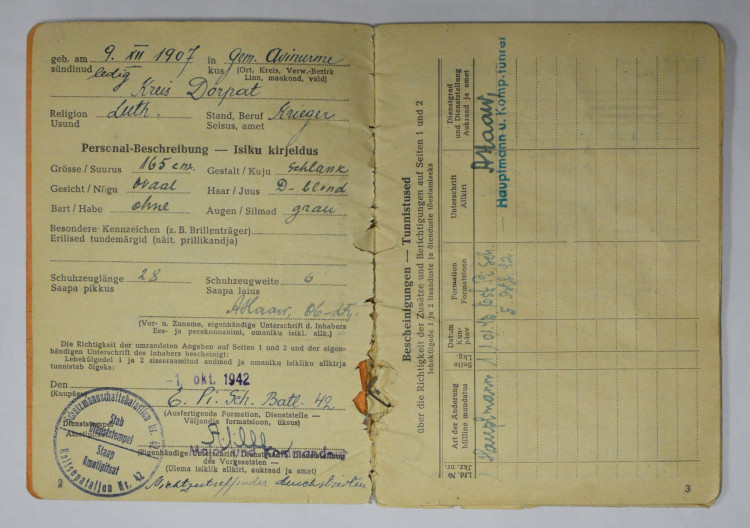 geb. am 9. XII 1907 in Gem. Avinurme
sündinud ledig kus (Ort, Kreis, Verw.-Bezirk
Linn, maakond, vald)
Kreis Dorpat
Religion Luth. Stand, Beruf Krieger
Usund Seisus, amet
Personal-Beschreibung — Isiku kirjeldus
Grösse / Suurus 165 cm. Gestalt / Kuju schlank
Gesicht / Nägu Ovaal Haar / Juus D-blond
Bart / Habe ohne Augen / Silmad grau
Besondere Kennzeichen (z. B. Brillenträger)
Erilised tundemärgid (näit. prillikandja)
Schuhzeuglänge 28 Schuhzeugweite 6
Saapa pikkus Saapa laius
(Vor- u. Zuname, eigenhändige Unterschrift d. Inhabers
Ees- ja perekonnanimi, omaniku isikl. allk.)
Die Richtigkeit der umrandeten Angaben auf Seiten 1 und 2 und der eigen-
händigen Unterschrift des Inhabers bescheinigt:
Lehekülgedel 1 ja 2 sisseraamitud andmed ja omaniku isikliku allkirja
tunnistab õigeks:
Den -1. okt. 1942
(Kuupäev)
E. Pi. Sch. Batl. 42
(Ausfertigende Formation, Dienststelle —
Väljandja formatsioon, üksus)
Dienststempel
Major und Kommandeur
(Eigenhändige Unterschrift, Dienstgrad u. Dienststellung
des Vorgesetzten —
(Ülema isiklik allkiri, aukraad ja amet)
Nichtzutreffendes durchstreichen
Schutzmannschaftsbataillon Nr. 42
Stab
Dienststempel
Staap
Ametipitsat
Kaitsepataljon Nr. 42
2
Bescheinigungen — Tunnistused
über die Richtigkeit der Zusätze und Berichtigungen auf Seiten 1 und 2
lehekülgede 1 ja 2 lisanduste ja õienduste tõestamiseks
Lfd. Nr.
Jkr. nr.
Art der Änderung
Milline muudatus
Seite
Lkg.
Datum
Kuu-
päev
Formation
Formatsioon
Unterschrift
Allkiri
Dienstgrad
und Dienststellung
Aukraad ja amet
Hauptmann
Hauptmann u. Komp.führer
3